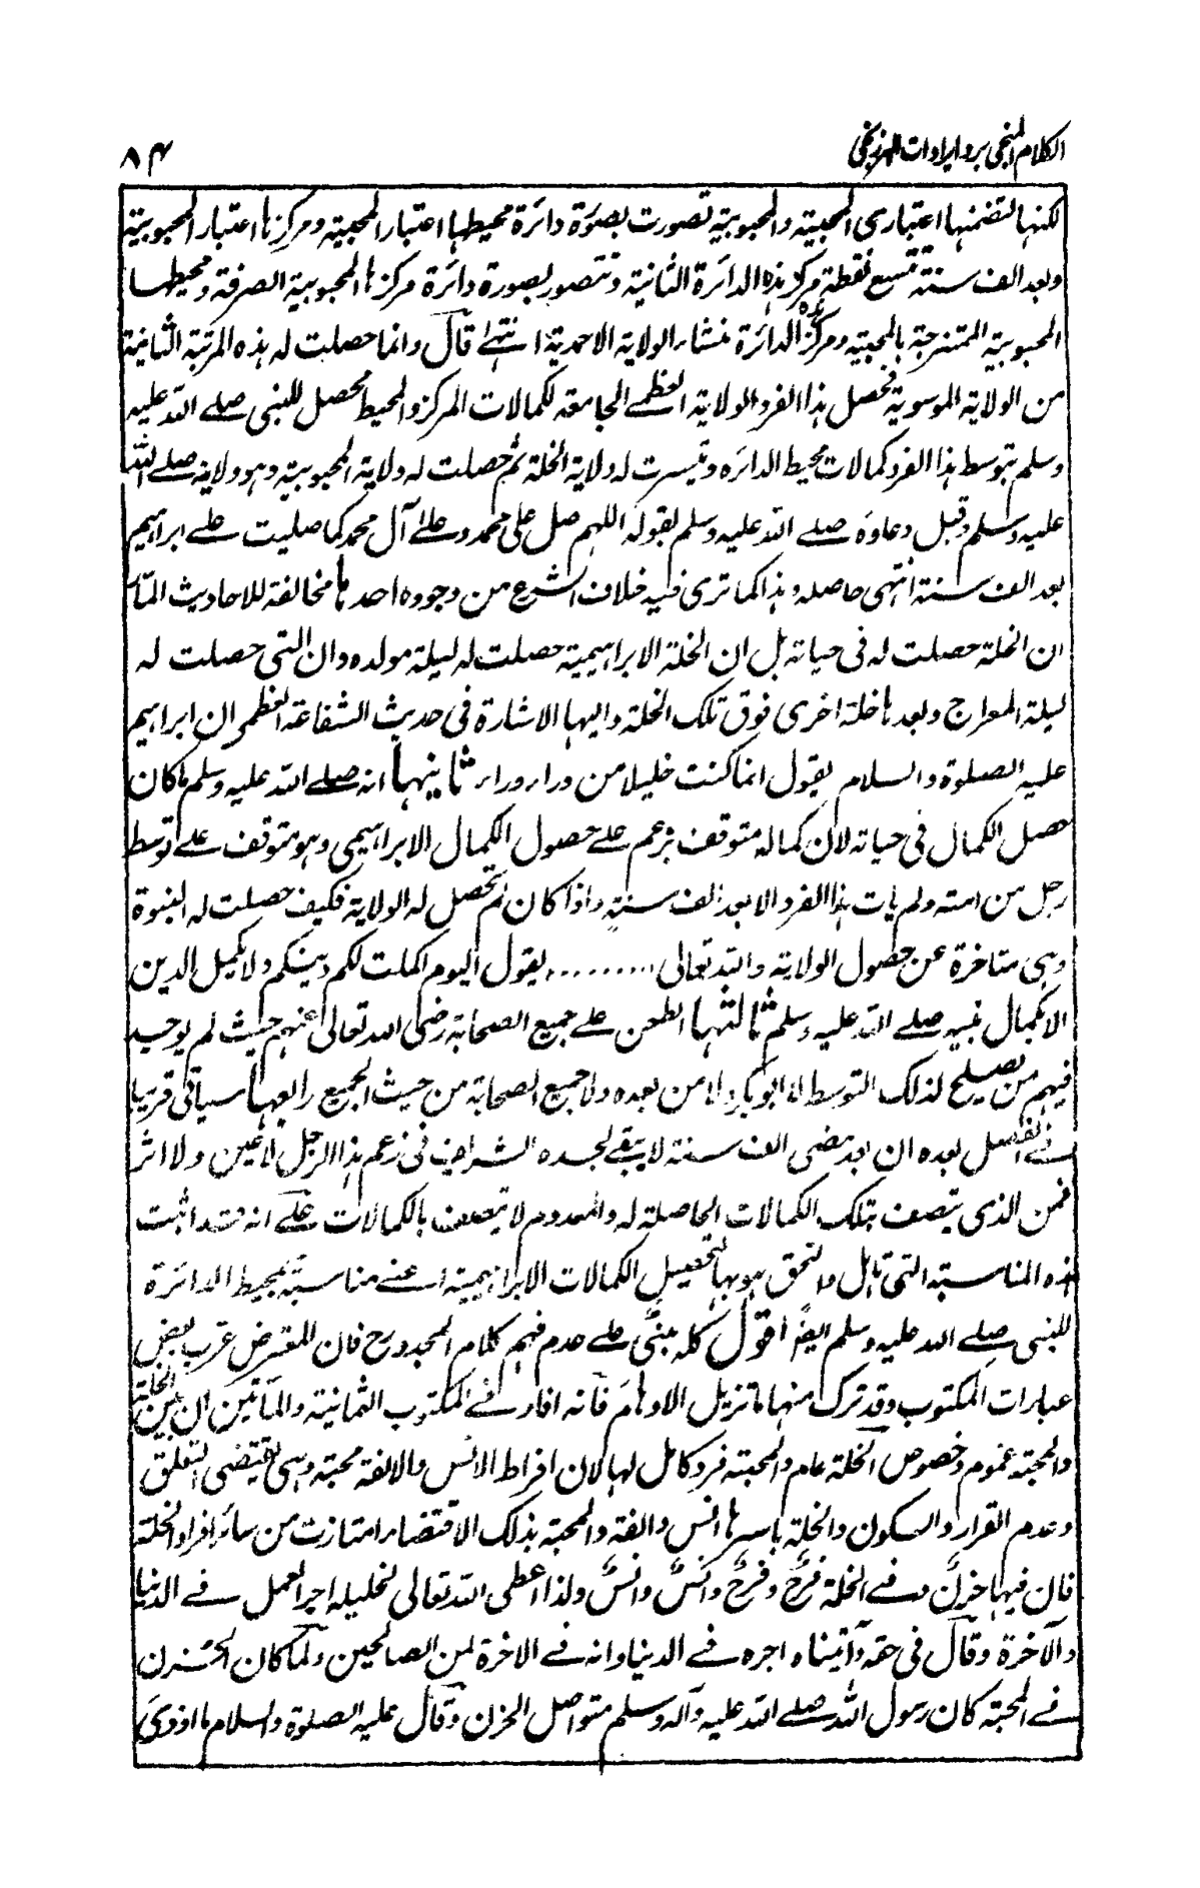 الكلام المنجى برد ايرادات البرزنجى
٨٤
لكنها لتضمنها اعتبارى المحبية والمحبوبية تصورت بصورة دائرة محيطها اعتبار المحبية ومركزها اعتبار المحبوبية
وبعد الف سنة تتسع نقطة مركز هذه الدائرة الثانية وتتصور بصورة دائرة مركزها المحبوبية الصرفة ومحيطها
المحبوبية الممتزجة بالمحبية ومركز هذه الدائرة منشاء الولاية الاحمدية انتهى قال وانما حصلت له هذه المرتبة الثانية
من الولاية الموسوية فحصل هذا الفرد الولاية العظمى الجامعة لكمالات المركز والمحيط فحصل للنبى صلى الله عليه
وسلم بتوسط هذا الفرد كمالات محيط الدائرة وتيسرت له ولاية الخلة ثم حصلت له ولاية المحبوبية وهو ولايته صلى الله
عليه وسلم وقبل دعاوه صلى الله عليه وسلم بقوله اللهم صل على محمد وعلى آل محمد كما صليت على ابراهيم
بعد الف سنة انتهى حاصله وهذا كما ترى فيه خلاف الشرع من وجوه احدها مخالفة للاحاديث
ان الخلة حصلت له فى حياته بل ان الخلة الابراهيمية حصلت له ليلة مولده وان التى حصلت له
ليلة المعراج وبعدها خلة اخرى فوق تلك الخلة واليها الاشارة فى حديث الشفاعة العظمى ان ابراهيم
عليه الصلوة والسلام يقول انما كنت خليلا من وراء وراء ثانيها انه صلى الله عليه وسلم ما كان
حصل الكمال فى حياته لان كماله متوقف بزعمه على حصول الكمال الابراهيمى وهو متوقف على توسط
رجل من امته ولم يات هذا الفرد الا بعد الف سنة واذا كان لم تحصل له الولاية فكيف حصلت له النبوة
وهى متاخرة عن حصول الولاية والله تعالى ......... يقول اليوم اكملت لكم دينكم ولا يكمل الدين
الا بكمال نبيه صلى الله عليه وسلم ثالثها الطعن على جميع الصحابة رضى الله تعالى عنهم حيث لم يوجد
فيهم من يصلح لذلك التوسط لا ابو بكر ولا من بعده ولا جميع الصحابة من حيث الجميع رابعها سياتى قريبا
فى الفصل بعده ان بعد مضى الف سنة لا يبقى لجسده الشريف فى زعم هذا الرجل لا عين ولا اثر
فمن الذى يتصف بتلك الكمالات الحاصلة له والمعدوم لا يتصف بالكمالات على انه قد اثبت
هذه المناسبة التى تاهل والتحق هو بها لتحصيل الكمالات الابراهيمية اعنى مناسبة بمحيط الدائرة
للنبى صلى الله عليه وسلم ايضا اقول كله مبنى على عدم فهم كلام المجدد رح فان المعترض عرب بعض
عبارات المكتوب وقد ترك منها ما تزيل الاوهام فانه افاد فى المكتوب الثمانية والمأتين ان بين الخلة
والمحبة عموم وخصوص الخلة عام والمحبة فرد كامل لها لان افراط الانس والالفة محبة وهى تقتضى التعلق
وعدم القرار والسكون والخلة باسرها انس والفة والمحبة بذلك الاقتضاء امتازت من سائر افراد الخلة
فان فيها حزن وفى الخلة فرح وفرح وانس وانس ولذا اعطى الله تعالى لخليله اجر العمل فى الدنيا
والآخرة وقال فى حقه وآتيناه اجره فى الدنيا وانه فى الاخرة لمن الصالحين ولما كان الحزن
فى المحبة كان رسول الله صلى الله عليه وآله وسلم متواصل الحزن وقال عليه الصلوة والسلام ما اوذى